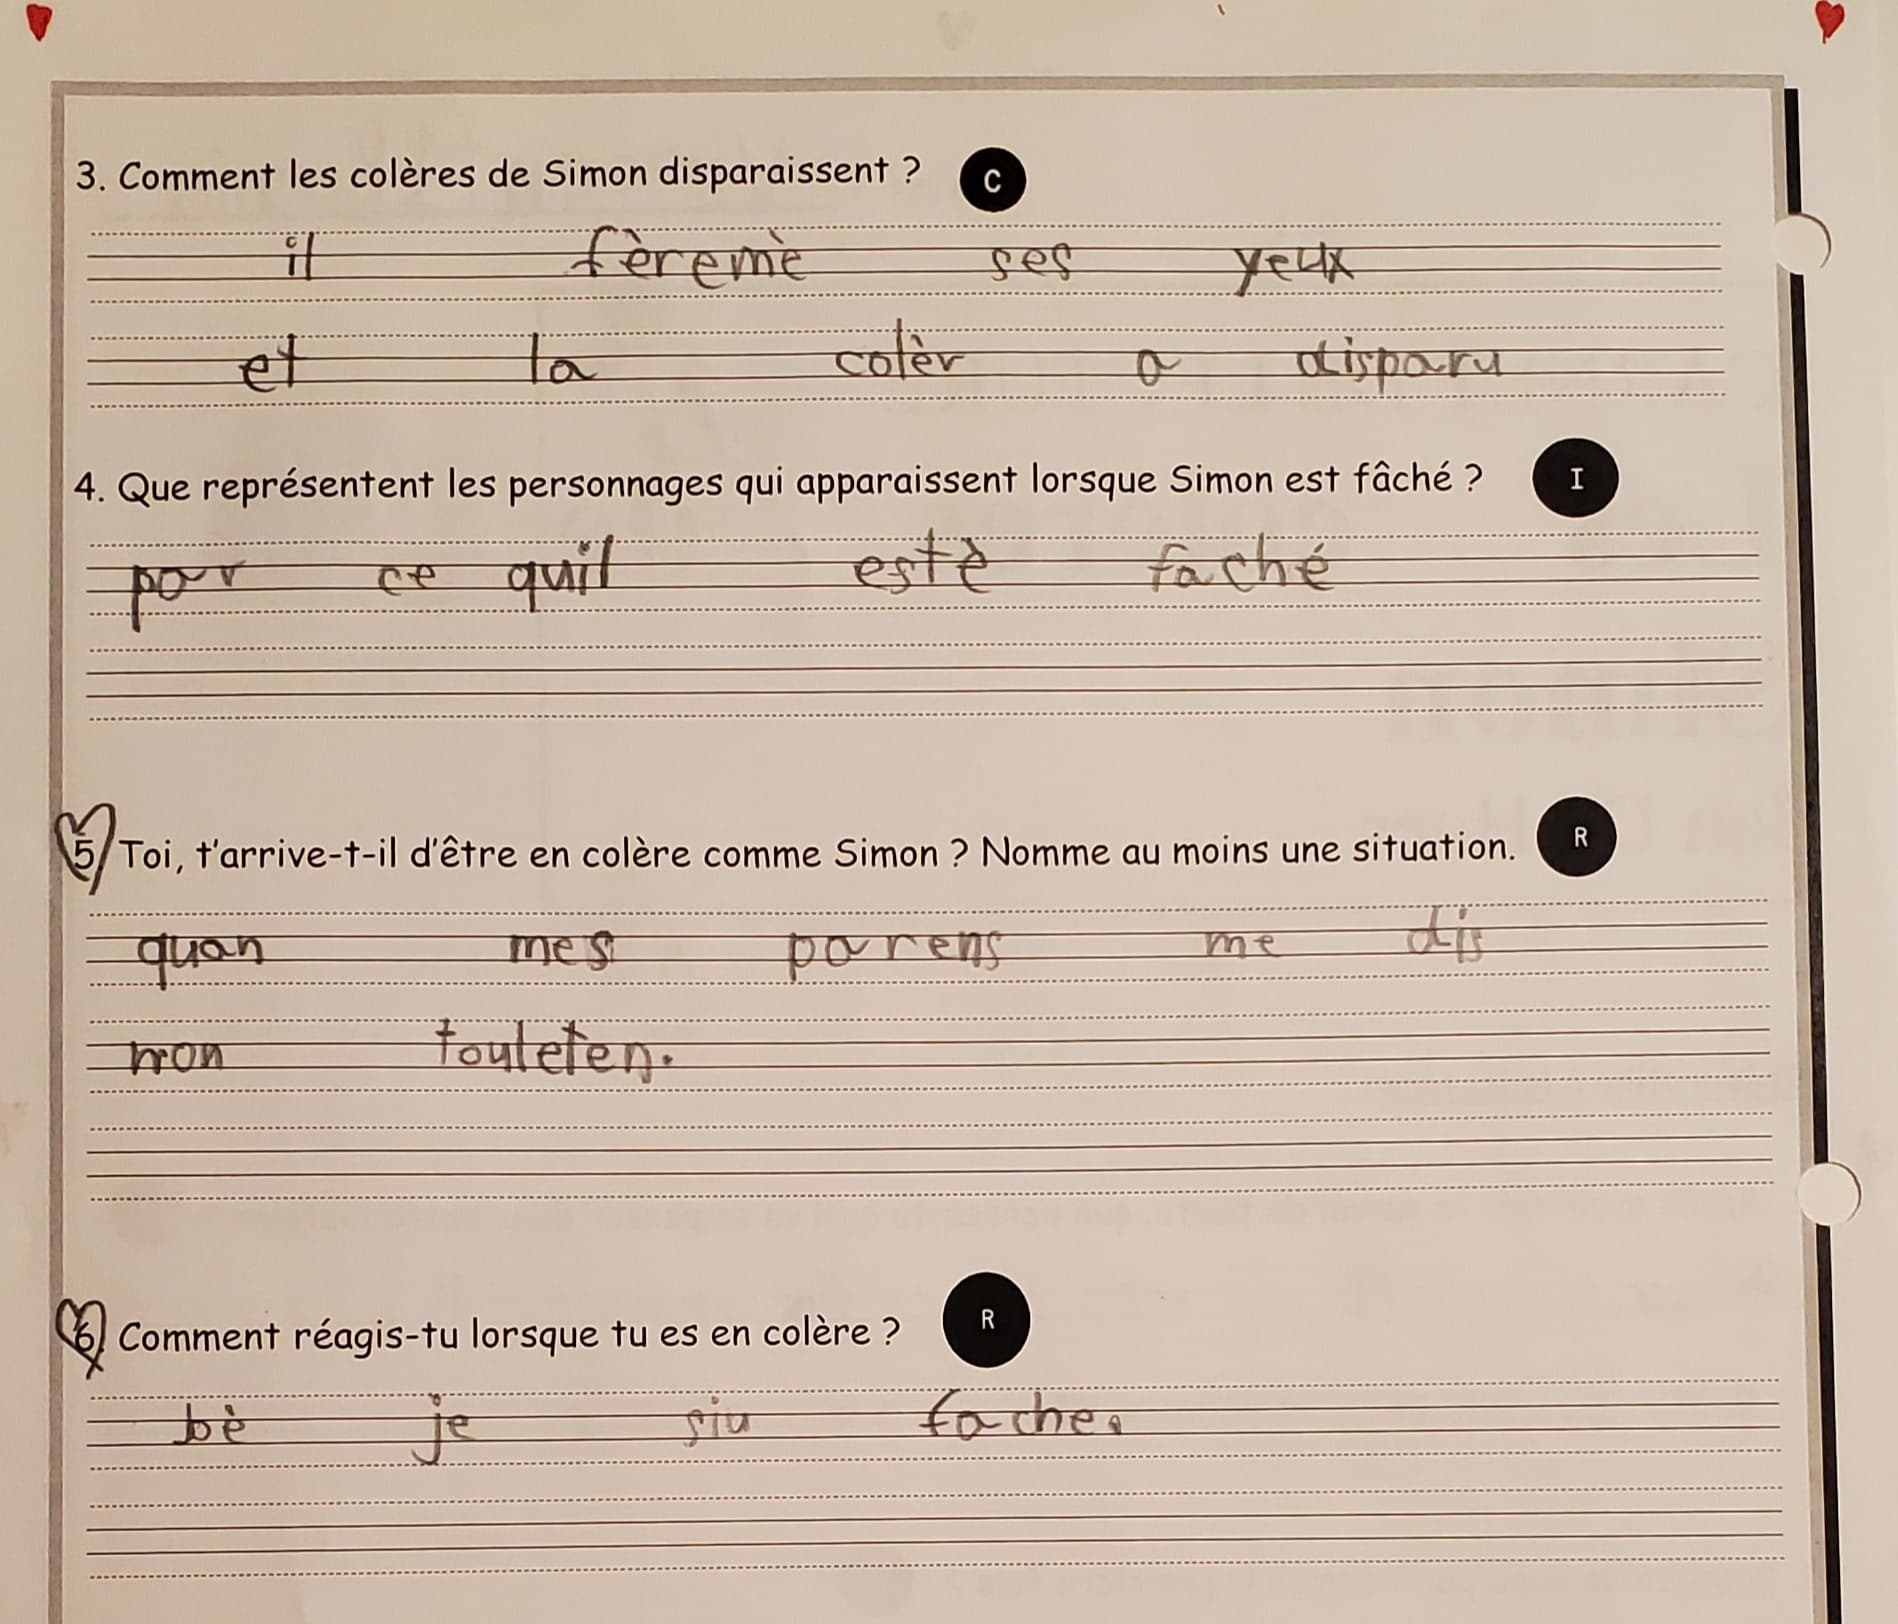 3. Comment les colères de Simon disparaissent ? C
il fèremè ses yeux
et la colèr a disparu
4. Que représentent les personnages qui apparaissent lorsque Simon est fâché ? I
par ce quil estè faché
5. Toi, t'arrive-t-il d'être en colère comme Simon ? Nomme au moins une situation. R
quan mes parens me dis
non touleten.
6. Comment réagis-tu lorsque tu es en colère ? R
bè je siu fache.